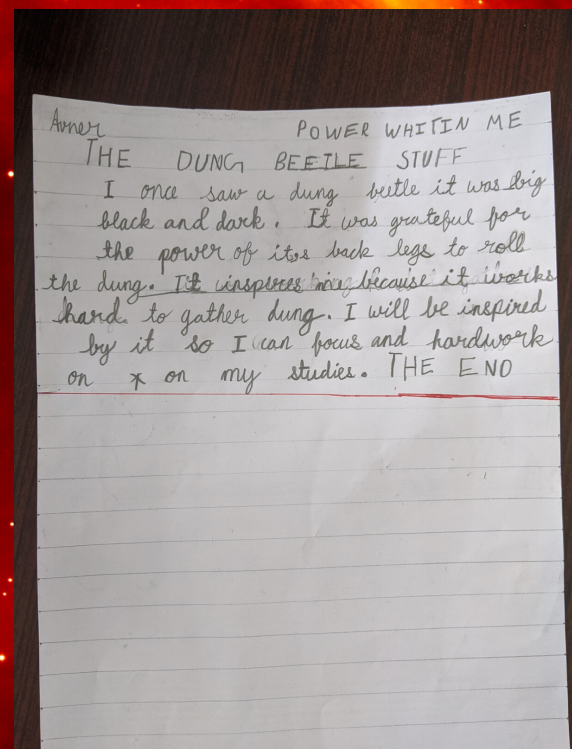 Avner POWER WHITIN ME
THE DUNG BEETLE STUFF
I once saw a dung beetle it was big
black and dark. It was grateful for
the power of its back legs to roll
the dung. It inspires me because it works
hard to gather dung. I will be inspired
by it so I can focus and hardwork
on on my studies. THE END